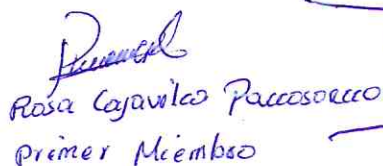 Rosa Cajavilca Paccosoncco
Primer Miembro